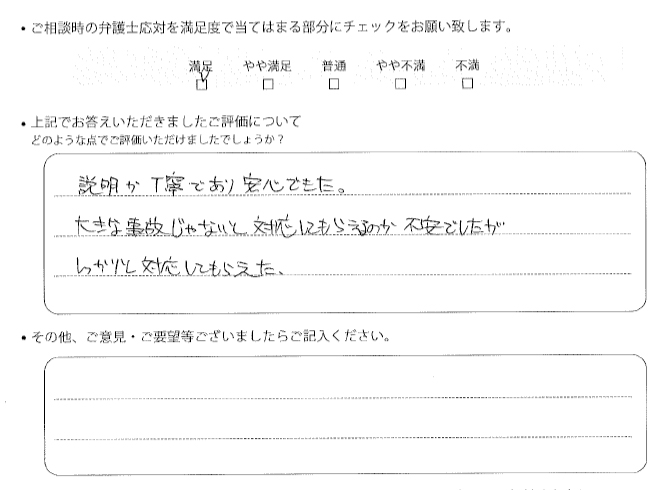 ・ご相談時の弁護士応対を満足度で当てはまる部分にチェックをお願い致します。
満足 やや満足 普通 やや不満 不満
・上記でお答えいただきましたご評価について
どのような点でご評価いただけましたでしょうか？
説明が丁寧であり安心できた。
大きな事故じゃないと対応してもらえるのか不安でしたが
しっかりと対応してもらえた、
・その他、ご意見・ご要望等ございましたらご記入ください。